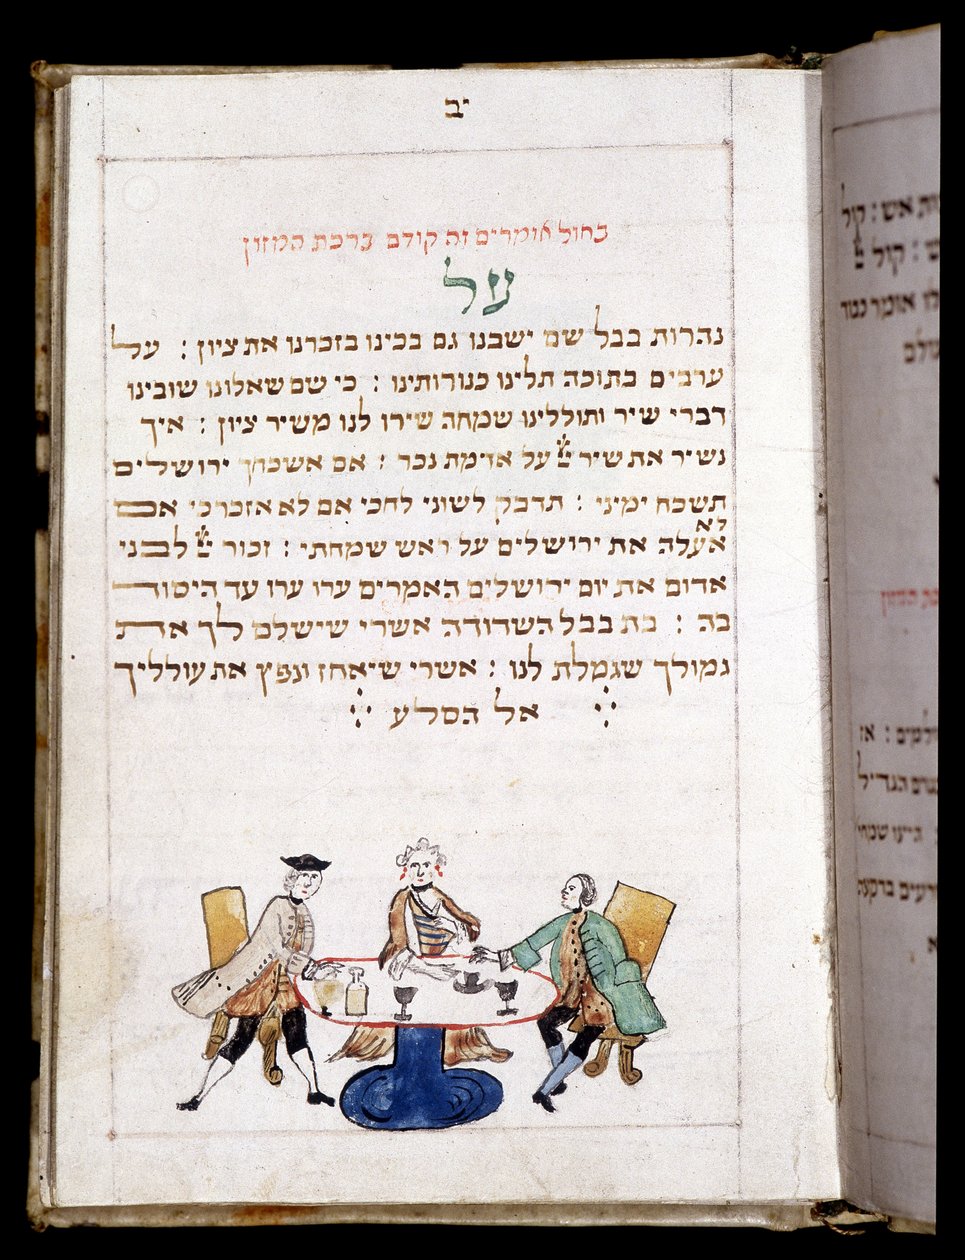 יב
בחול אומרים זה קודם ברכת המזון
על
נהרות בבל שם ישבנו גם בכינו בזכרנו את ציון : על
ערבים בתוכה תלינו כנורותינו : כי שם שאלונו שובינו
דברי שיר ותוללינו שמחה שירו לנו משיר ציון : איך
נשיר את שיר על אדמת נכר : אם אשכחך ירושלים
תשכח ימיני : תדבק לשוני לחכי אם לא אזכרכי אם
לא
אעלה את ירושלים על ראש שמחתי : זכור לבני
אדום את יום ירושלים האמרים ערו ערו עד היסוד
בה : בת בבל השדודה אשרי שישלם לך את
גמולך שגמלת לנו : אשרי שיאחז ונפץ את עולליך
אל הסלע
קול אש :
קול :
אומר כנגד
המזון
אז :
הגדיל
שמחי